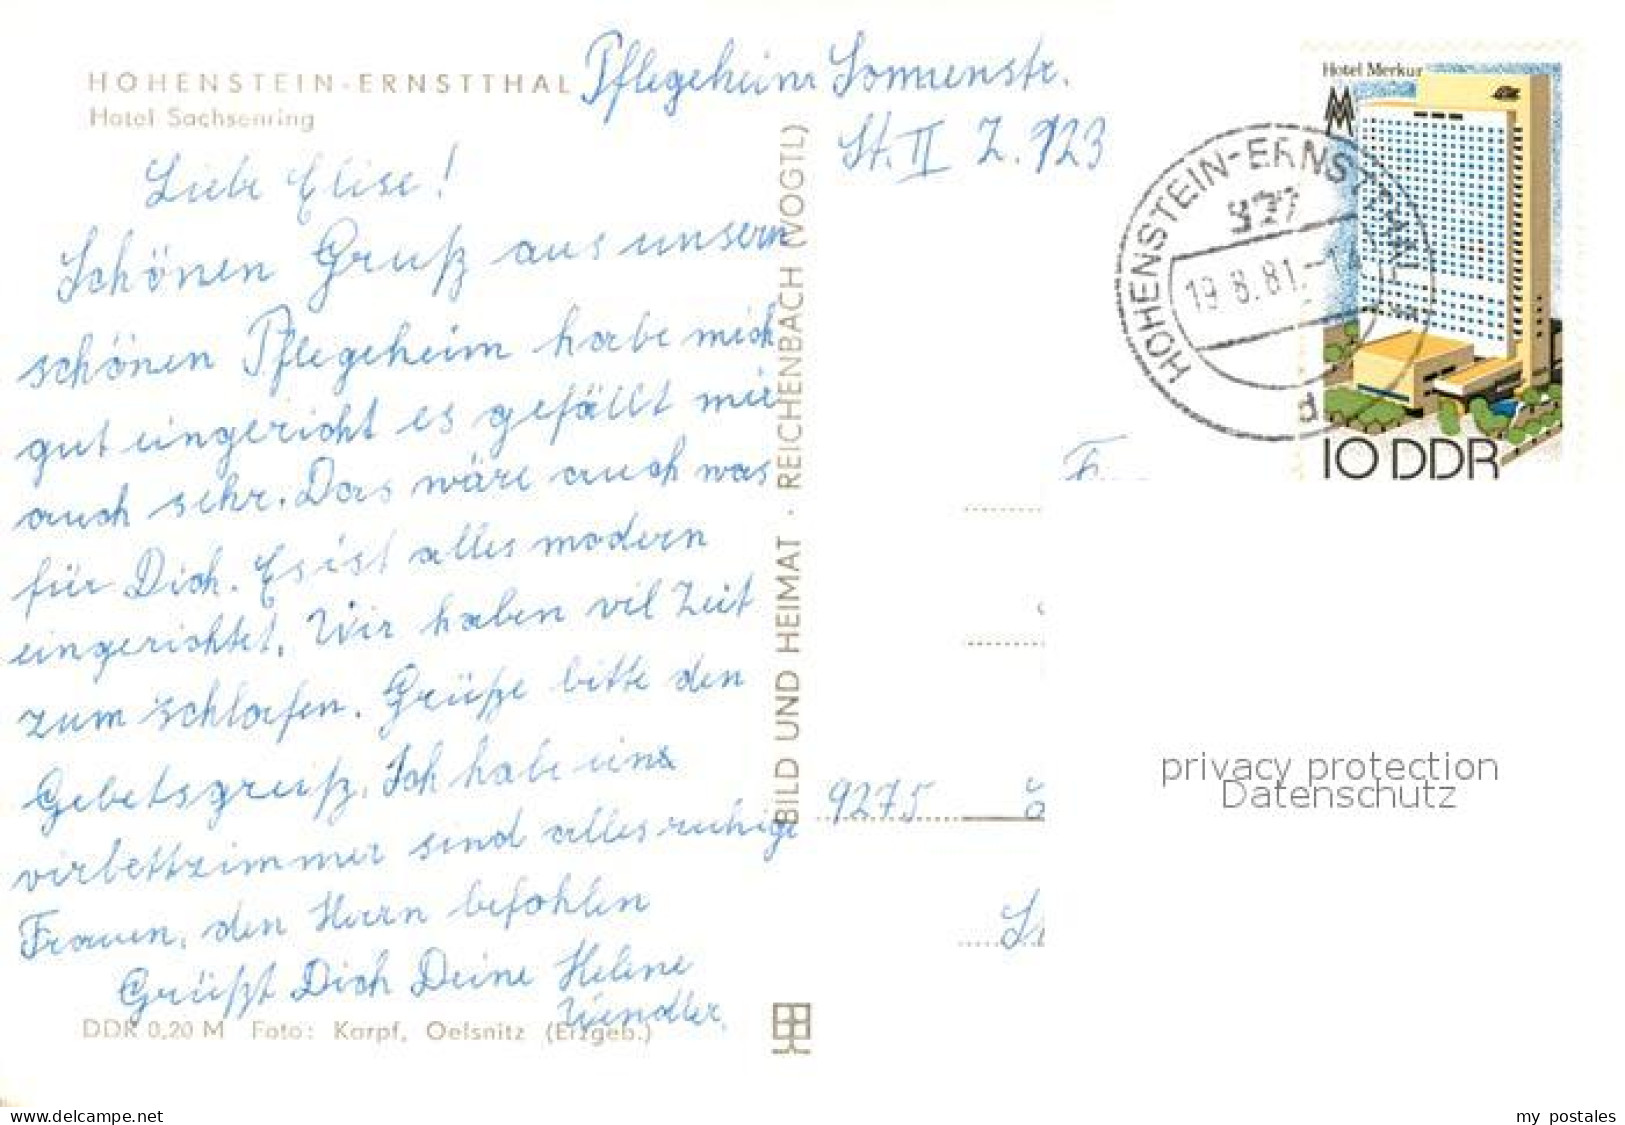 HOHENSTEIN-ERNSTTHAL
Hotel Sachsenring
Pflegeheim Sonnenstr.
St. II Z. 123
Liebe Elise!
Schönen Gruß aus unsern
schönen Pflegeheim habe mich
gut eingericht es gefällt mir
auch sehr. Das wäre auch was
für Dich. Es ist alles modern
eingerichtet. Wir haben vil Zeit
zum schlafen. Grüße bitte den
Gebetsgruß. Ich habe ein
virbettzimmer sind alles ruhige
Frauen, den Herrn befohlen
Grüßt Dich Deine Helene
Wendler.
DDR 0,20 M Foto: Karpf, Oelsnitz (Erzgeb.)
BILD UND HEIMAT · REICHENBACH (VOGTL)
Hotel Merkur
10 DDR
HOHENSTEIN-ERNSTTHAL
927
19.8.81.-1
d
F
9275
privacy protection
Datenschutz
www.delcampe.net
my_postales